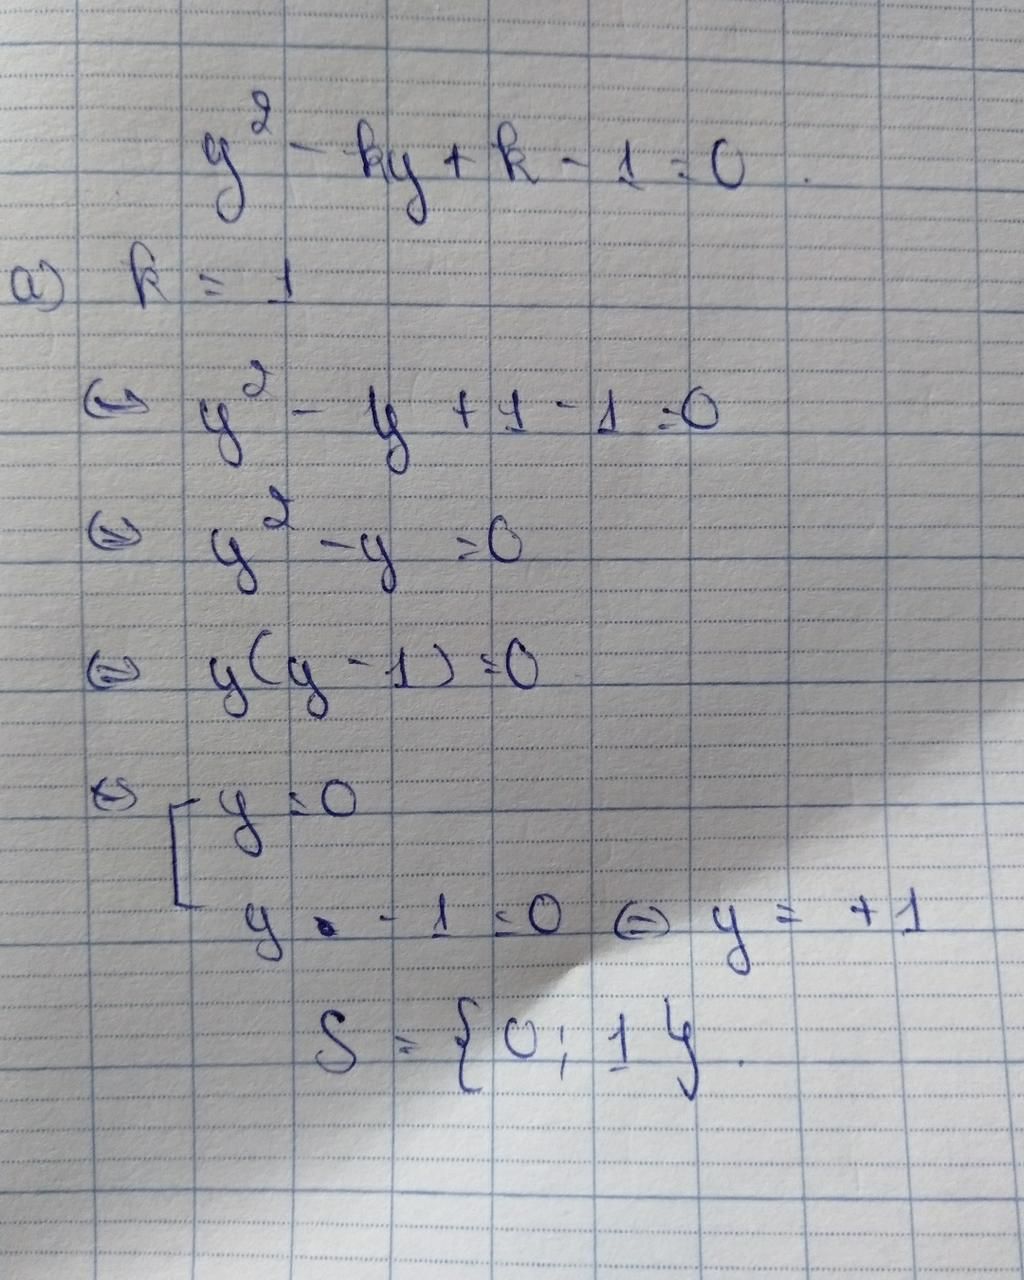 y² - ky + k - 1 = 0.
a) k = 1
⇔ y² - 1y + 1 - 1 = 0
⇔ y² - y = 0
⇔ y(y - 1) = 0
⇔ [ y = 0
y - 1 = 0 ⇔ y = +1
S = {0; 1}.